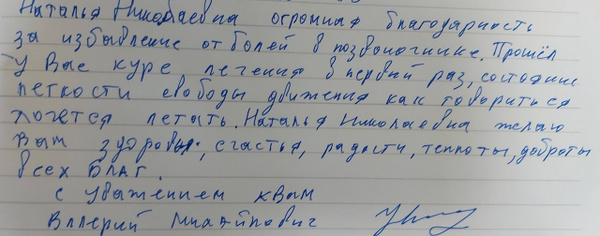 Наталья Николаевна огромная благодарность
за избывление от болей в позвоночнике. Прошёл
у Вас курс лечения в первый раз, состояние
легкости свободы движения как говориться
хочется летать. Наталья Николаевна желаю
вам здоровья, счастья, радости, теплоты, доброты
всех благ.
с уважением к вам
Валерий Михайлович